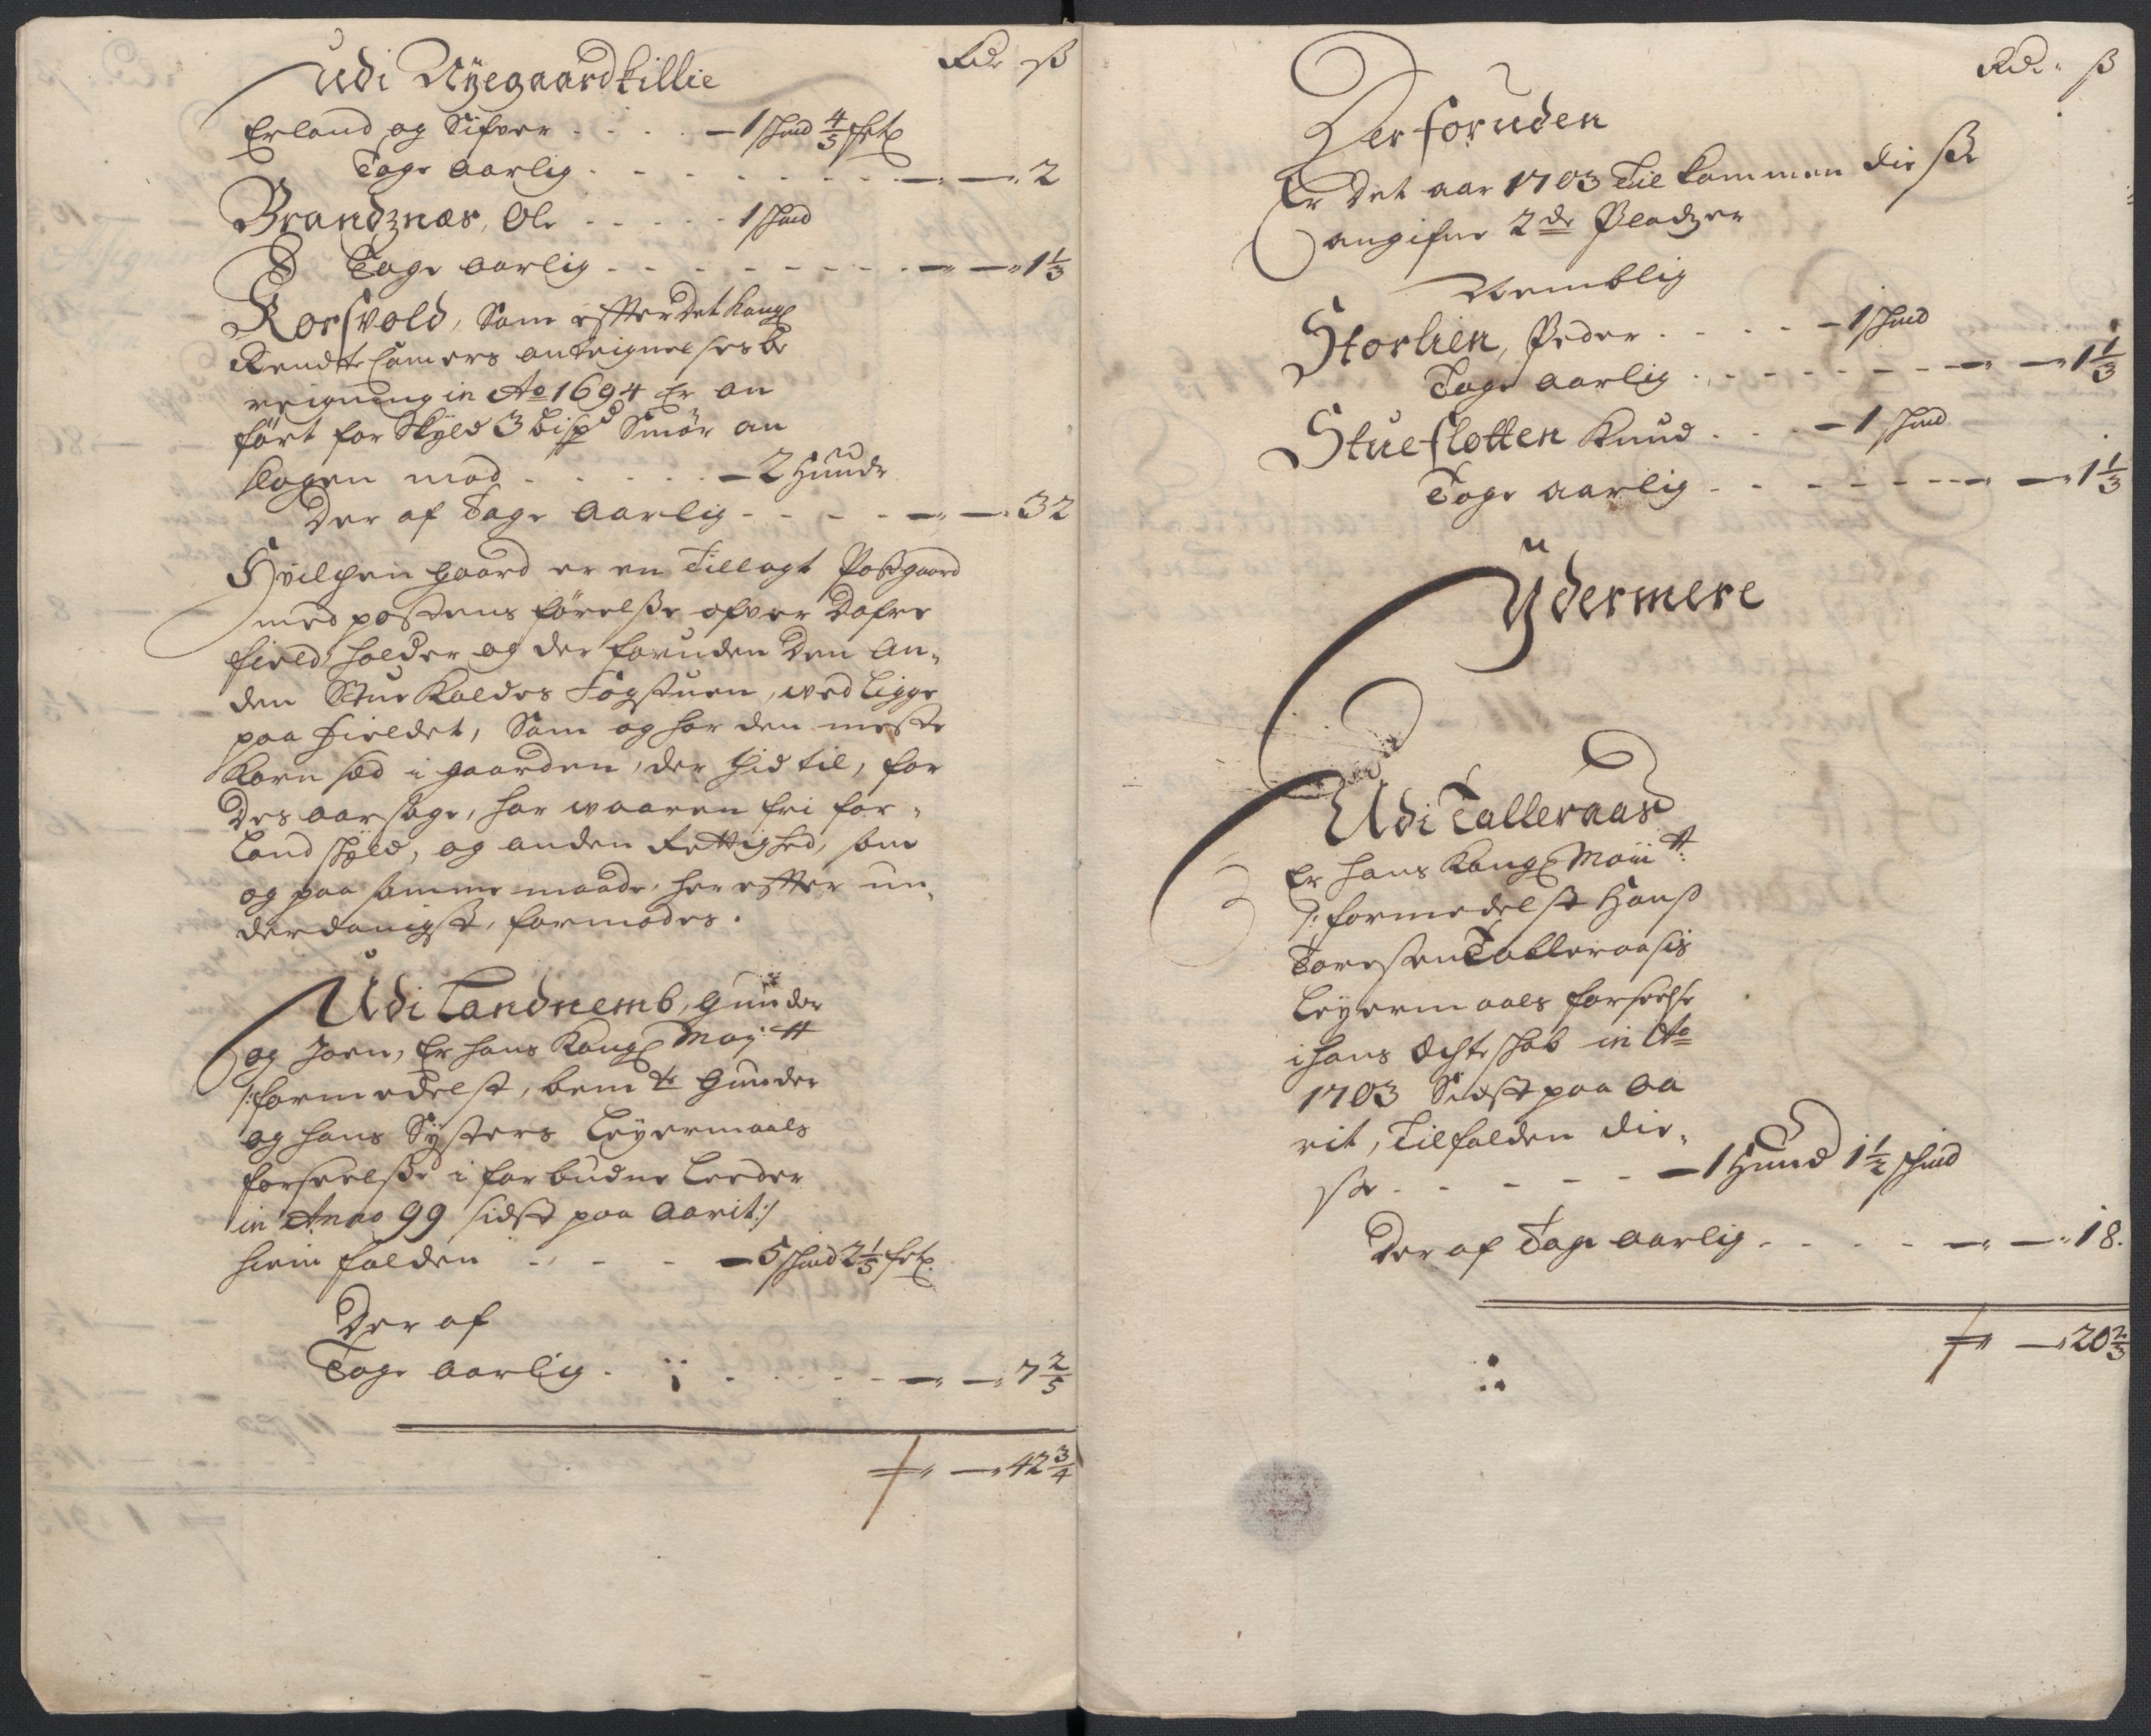 Rdr ß
Udi Nÿegaardkillie
Erland og Sifver - - - - 1 skind 4/5 sk
Tage aarlig - - - - - 2
Brandznæs, Ole - - - - 1 skind
Tage aarlig - - - - - 1 1/3
Korsvold, Som efter Det Kongl
Rendte Camers anteignelses be
reigning in Ao 1694 Er an
ført for Skyld 3 bispd Smør an
slagen mod - - - - 2 Hunde
Der af Tage Aarlig - - - - 32
Hvilchen gaard er en Tillagt Postgaard
med postens førelse ofver Dofre
field holder og der foruden Den An-
den Stue Kaldes Fogstuen, wed Ligge
paa Fieldet, Som og har den meste
Korn sæd i gaarden, der hid til, for
Des aarsage, har waaren fri for-
Land skyld, og anden Rettighed, som
og paa samme maade, her efter un-
derdanigst, formodes.
Udi Landnemb, Gunder
og Joen, Er hans Kongl May: tt
/: formedelst, bemte Gunder
og hans Systers Leyermaals
forseelse i forbudne Leeder
in Anno 99 sidst paa Aarit :/
hiem falden - - - - 5 skind 2 1/5 sk
Der af
Tage Aarlig - - - - - 7 2/5
42 3/4
Rdr ß
Der foruden
Er Det aar 1703 Til kommen disse
angifne 2de Pladzer
Nemblig
Storlien, Peder - - - - 1 skind
Tage aarlig - - - - - 1 1/3
Stueflotten Knud - - - 1 skind
Tage aarlig - - - - - 1 1/3
Ÿdermere
Udi Talleraas
Er hans Kongl Maii tt:
/: formedelst Hans
Toresten Talleraasis
Leyermaals forseelse
i hans Echteskab in Ao
1703 Sidst paa Aa
rit, Tilfalden die-
sse - - - - - 1 Hund 1 1/2 skind
Der af Tage Aarlig - - - - 18.
20 2/3